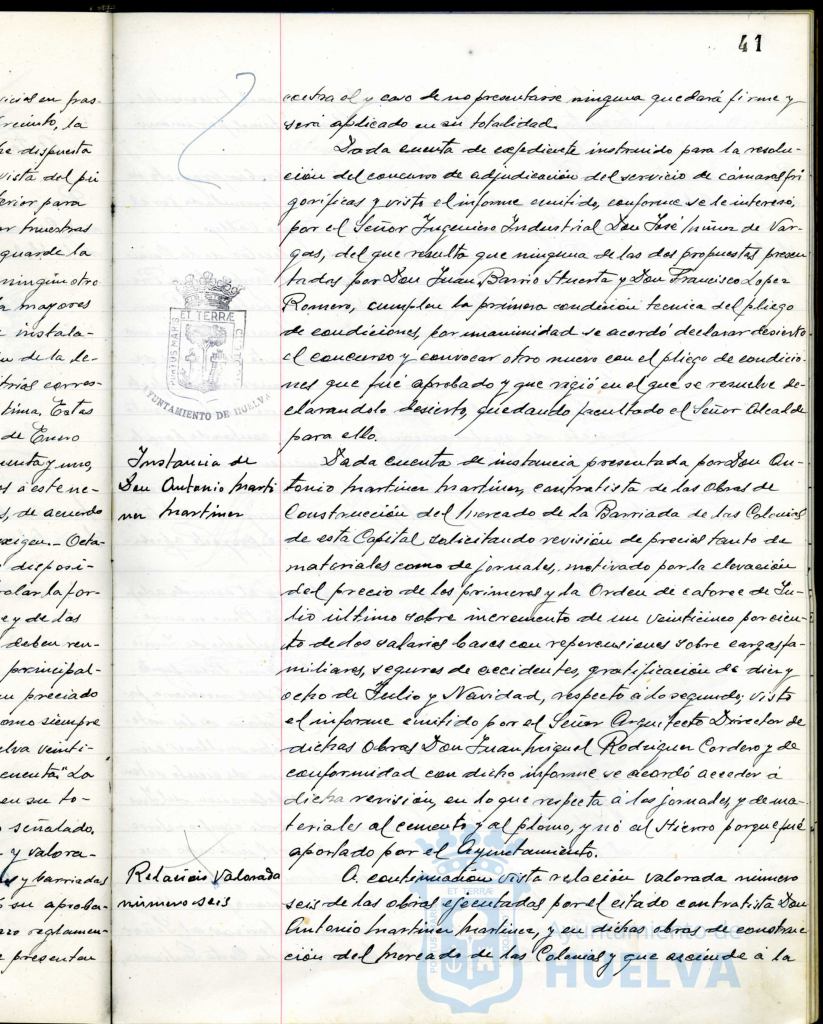 41
vicios en fras-
recinto, la
dispuesta
vista del pú
erior para
ar muestras
guarde la
ningún otro
mayores
instala-
de la de-
corres-
Estas
de Enero
cuenta y uno,
este ne-
de acuerdo
exigen.- Octa-
disposi-
la for-
y de las
deben reu-
principal-
preciado
como siempre
elva veinti-
cuenta". La
en su to-
señalado,
y valora-
y barriadas
su aproba-
reglamen-
presentan
contra el y caso de no presentarse ninguna quedará firme y
será aplicado en su totalidad.
Dada cuenta de expediente instruido para la resolu-
ción del concurso de adjudicación del servicio de cámaras fri
goríficas y visto el informe emitido, conforme se le interesó,
por el Señor Ingeniero Industrial Don José Nuñez de Var-
gas, del que resulta que ninguna de las dos propuestas presen-
tadas por Don Juan Barrio Huerta y Don Francisco Lopez
Romero, cumplen la primera condición tecnica del pliego
de condiciones, por unanimidad se acordó declarar desierto
el concurso y convocar otro nuevo con el pliego de condicio-
nes que fué aprobado y que rigió en el que se resuelve de-
clarandolo desierto, quedando facultado el Señor Alcalde
para ello.
PORTUS MARIS
ET TERRÆ
CUSTODIA
AYUNTAMIENTO DE HUELVA
Instancia de
Don Antonio Marti
nez Martinez
Dada cuenta de instancia presentada por Don An-
tonio Martinez Martinez, contratista de las Obras de
Construcción del Mercado de la Barriada de las Colonias
de esta Capital solicitando revisión de precios tanto de
materiales como de jornales, motivado por la elevación
del precio de los primeros y la Orden de catorce de Ju-
lio último sobre incremento de un veinticinco por cien-
to de los salarios bases con repercusiones sobre cargas fa-
miliares, seguros de accidentes, gratificación de diez y
ocho de Julio y Navidad, respecto á lo segundo; visto
el informe emitido por el Señor Arquitecto Director de
dichas Obras Don Juan Miguel Rodriguez Cordero y de
conformidad con dicho informe se acordó acceder á
dicha revisión, en lo que respecta á los jornales, y de ma-
teriales al cemento y al plomo, y nó al Hierro porque fué
aportado por el Ayuntamiento.
Relación Valorada
número seis
A continuación vista relación valorada número
seis de las obras ejecutadas por el citado contratista Don
Antonio Martinez Martinez, y en dichas obras de construc
ción del Mercado de las Colonias y que asciende á la
PORTUS MARIS
ET TERRÆ
CUSTODIA
Ayuntamiento de
HUELVA